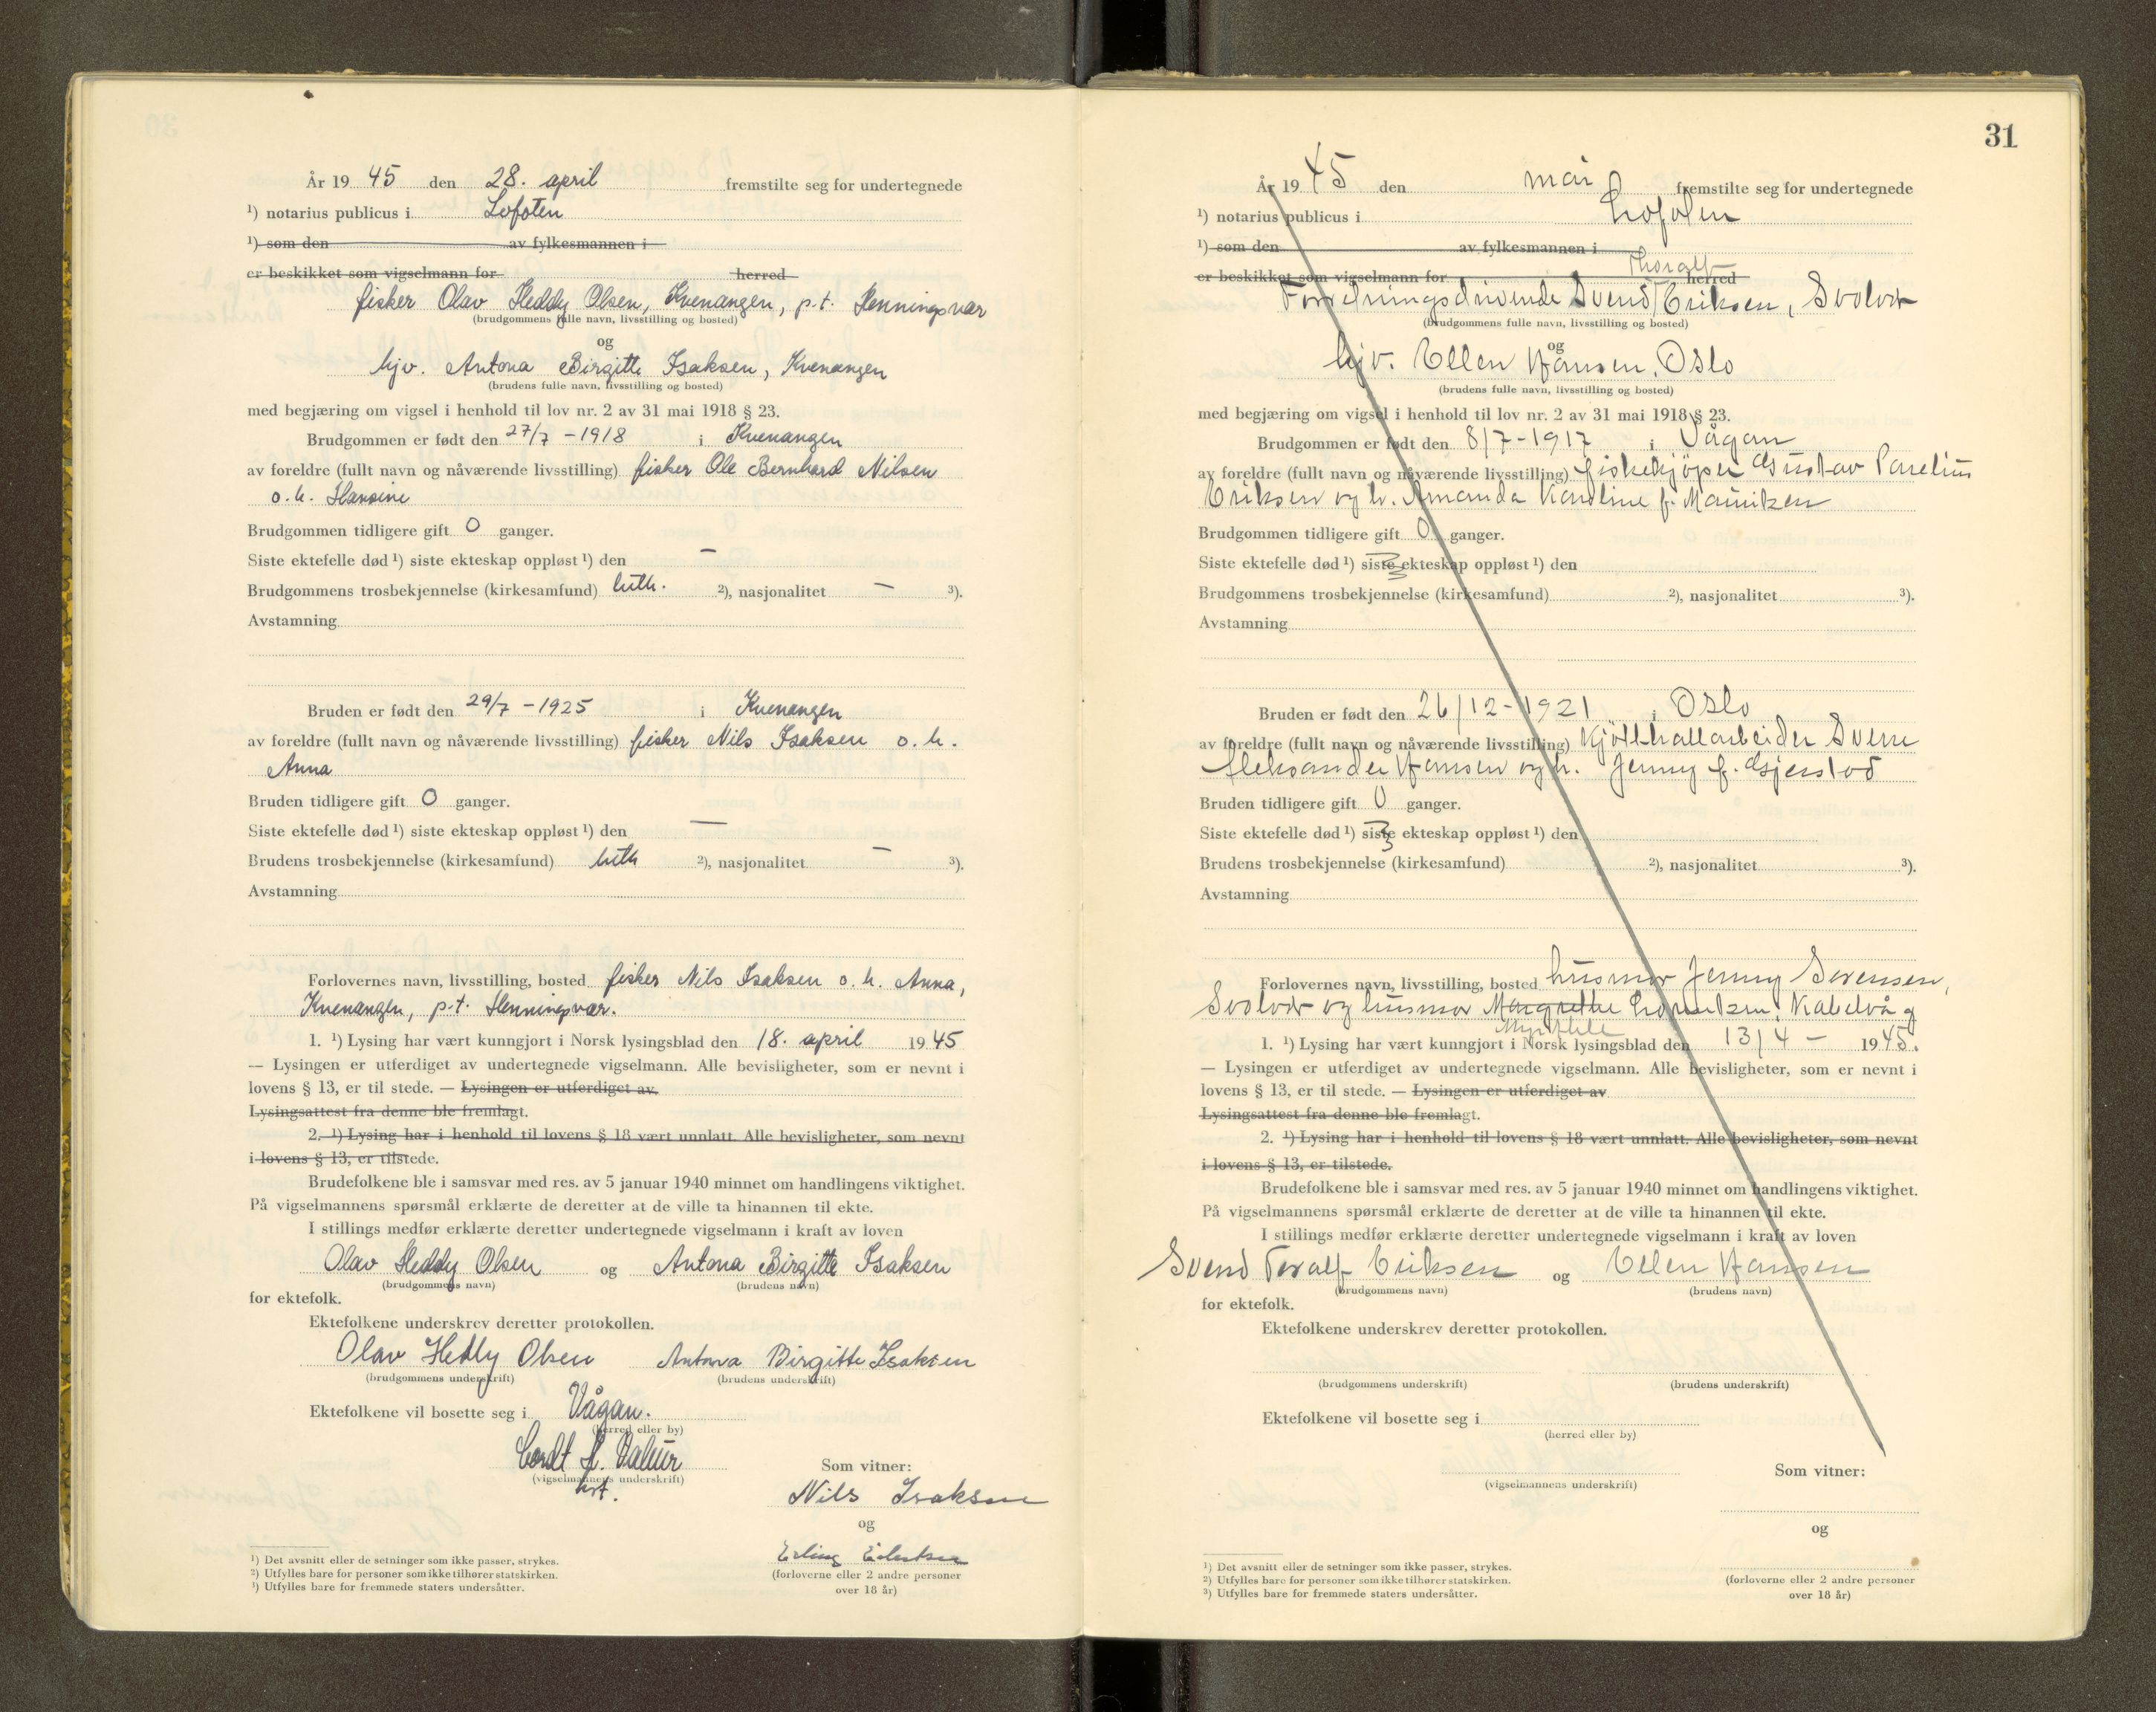 År 19 45 den 28. april fremstilte seg for undertegnede
¹) notarius publicus i Lofoten
¹) som den av fylkesmannen i
er beskikket som vigselmann for herred
fisker Olav Heddy Olsen, Kvenangen, p.t. Henningsvær
(brudgommens fulle navn, livsstilling og bosted)
og
hjv. Antona Birgitte Isaksen, Kvenangen
(brudens fulle navn, livsstilling og bosted)
med begjæring om vigsel i henhold til lov nr. 2 av 31 mai 1918 § 23.
Brudgommen er født den 27/7 - 1918 i Kvenangen
av foreldre (fullt navn og nåværende livsstilling) fisker Ole Bernhard Nilsen
o. h. Hansine
Brudgommen tidligere gift 0 ganger.
Siste ektefelle død ¹) siste ekteskap oppløst ¹) den —
Brudgommens trosbekjennelse (kirkesamfund) luth. ²), nasjonalitet — ³).
Avstamning
Bruden er født den 29/7 - 1925 i Kvenangen
av foreldre (fullt navn og nåværende livsstilling) fisker Nils Isaksen o. h.
Anna
Bruden tidligere gift 0 ganger.
Siste ektefelle død ¹) siste ekteskap oppløst ¹) den —
Brudens trosbekjennelse (kirkesamfund) luth ²), nasjonalitet — ³).
Avstamning
Forlovernes navn, livsstilling, bosted fisker Nils Isaksen o. h. Anna,
Kvenangen, p.t. Henningsvær.
1. ¹) Lysing har vært kunngjort i Norsk lysingsblad den 18. april 19 45
— Lysingen er utferdiget av undertegnede vigselmann. Alle bevisligheter, som er nevnt i
lovens § 13, er til stede. — Lysingen er utferdiget av
Lysingsattest fra denne ble fremlagt.
2. ¹) Lysing har i henhold til lovens § 18 vært unnlatt. Alle bevisligheter, som nevnt
i lovens § 13, er tilstede.
Brudefolkene ble i samsvar med res. av 5 januar 1940 minnet om handlingens viktighet.
På vigselmannens spørsmål erklærte de deretter at de ville ta hinannen til ekte.
I stillings medfør erklærte deretter undertegnede vigselmann i kraft av loven
Olav Heddy Olsen og Antona Birgitte Isaksen
(brudgommens navn) (brudens navn)
for ektefolk.
Ektefolkene underskrev deretter protokollen.
Olav Hedly Olsen Antona Birgitte Isaksen
(brudgommens underskrift) (brudens underskrift)
Ektefolkene vil bosette seg i Vågan.
(herred eller by)
(vigselmannens underskrift)
Som vitner:
Nils Isaksen
og
Erling
(forloverne eller 2 andre personer
over 18 år)
¹) Det avsnitt eller de setninger som ikke passer, strykes.
²) Utfylles bare for personer som ikke tilhører statskirken.
³) Utfylles bare for fremmede staters undersåtter.
31
År 19 45 den mai fremstilte seg for undertegnede
¹) notarius publicus i Lofoten
¹) som den av fylkesmannen i
er beskikket som vigselmann for herred
Thoralf
Forretningsdrivende Svend Eriksen, Svolvær
(brudgommens fulle navn, livsstilling og bosted)
og
hjv. Ellen Hansen, Oslo
(brudens fulle navn, livsstilling og bosted)
med begjæring om vigsel i henhold til lov nr. 2 av 31 mai 1918 § 23.
Brudgommen er født den 8/7 - 1917 i Vågan
av foreldre (fullt navn og nåværende livsstilling) fiskekjöper Gustav Parelius
Eriksen og h. Amanda Karoline f. Mauritzen
Brudgommen tidligere gift 0 ganger.
Siste ektefelle død ¹) siste ekteskap oppløst ¹) den
Brudgommens trosbekjennelse (kirkesamfund) ²), nasjonalitet ³).
Avstamning
Bruden er født den 26/12 - 1921 i Oslo
av foreldre (fullt navn og nåværende livsstilling) Kjöttkallarbeider Sverre
Aleksander Hansen og h. Jenny f. Gjerstad
Bruden tidligere gift 0 ganger.
Siste ektefelle død ¹) siste ekteskap oppløst ¹) den
Brudens trosbekjennelse (kirkesamfund) ²), nasjonalitet ³).
Avstamning
Forlovernes navn, livsstilling, bosted husmor Jenny Sørensen,
Svolvær og husmor Margrethe Lorentzen, Kabelvåg
1. ¹) Lysing har vært kunngjort i Norsk lysingsblad den 13/4 - 19 45.
— Lysingen er utferdiget av undertegnede vigselmann. Alle bevisligheter, som er nevnt i
lovens § 13, er til stede. — Lysingen er utferdiget av
Lysingsattest fra denne ble fremlagt.
2. ¹) Lysing har i henhold til lovens § 18 vært unnlatt. Alle bevisligheter, som nevnt
i lovens § 13, er tilstede.
Brudefolkene ble i samsvar med res. av 5 januar 1940 minnet om handlingens viktighet.
På vigselmannens spørsmål erklærte de deretter at de ville ta hinannen til ekte.
I stillings medfør erklærte deretter undertegnede vigselmann i kraft av loven
Svend Toralf Eriksen og Ellen Hansen
(brudgommens navn) (brudens navn)
for ektefolk.
Ektefolkene underskrev deretter protokollen.
(brudgommens underskrift) (brudens underskrift)
Ektefolkene vil bosette seg i
(herred eller by)
(vigselmannens underskrift)
Som vitner:
og
(forloverne eller 2 andre personer
over 18 år)
¹) Det avsnitt eller de setninger som ikke passer, strykes.
²) Utfylles bare for personer som ikke tilhører statskirken.
³) Utfylles bare for fremmede staters undersåtter.